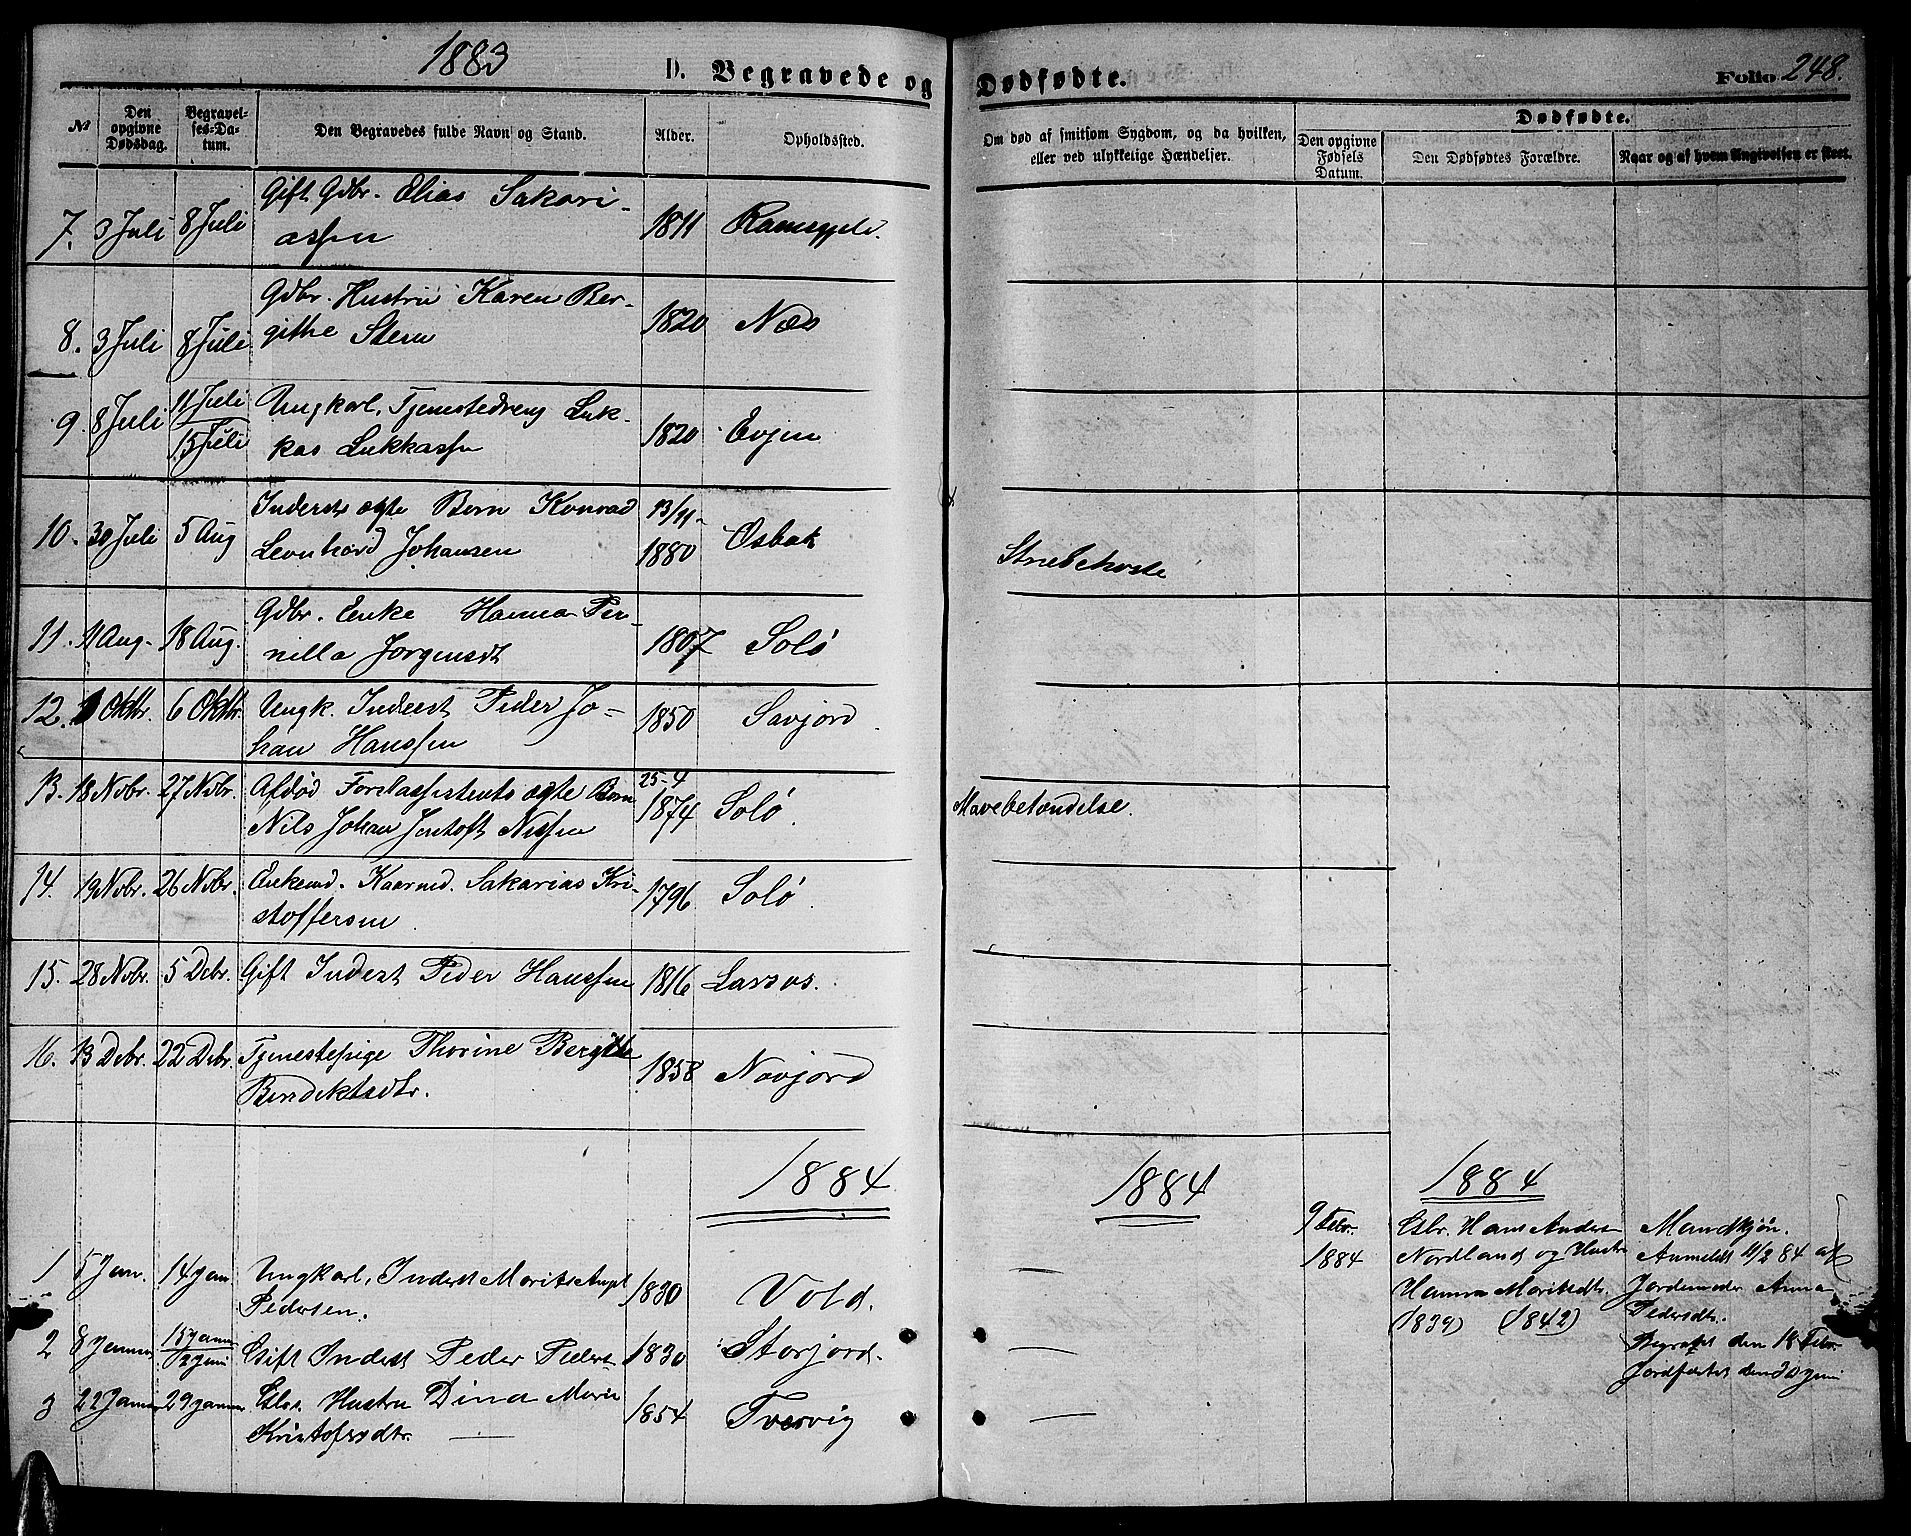 1883
D. Begravede og
Dødfødte.
Folio 248.
№
Den opgivne Dødsdag.
Begravelses-Datum.
Den Begravedes fulde Navn og Stand.
Alder.
Opholdssted.
Om død af smitsom Sygdom, og da hvilken, eller ved ulykkelige Hændelser.
Dødfødte.
Den opgivne Fødsels Datum.
Den Dødfødtes Forældre.
Naar og af hvem Angivelsen er skeet.
7. 3 Juli 8 Juli Gift Gdbr. Elias Sakari-
assen 1811
8. 3 Juli 8 Juli Gdbr. Hustru Karen Ber-
githe Steen 1820 Næs
9. 8 Juli 11 Juli Ungkarl, Tjenestedreng Luk-
15 Juli kas Lukkassen 1820 Evjen
10. 30 Juli 5 Aug Inderst ægte Barn Konrad 13/11-
Leonhard Johansen 1880 Osbak Strubehoste
11. 1 Aug. 18 Aug. Gdbr. Enke Hanna Per-
nilla Jørgensdt 1807 Solö
12. Oktbr. 6 Oktbr. Ungk. Inderst Peder Jo-
han Hanssen 1850 Savjord
13. 18 Novbr. 27 Novbr. Afdød Forstassistents ægte Barn 25-4
Nils Johan Jentoft Nissen 1874 Solö. Mavebetændelse.
14. 19 Novbr. 26 Novbr. Enkemd. Kaarmd. Sakarias Kri-
stoffersen. 1796 Solö.
15. 28 Novbr. 5 Debr. Gift Inderst Peder Hanssen 1816 Larsos.
16. 13 Debr. 22 Debr. Tjenestepige Thorine Bergitte
Bendiktsdtr. 1858 Novjord
1884
1884
1884
1 5 Jan. 14 Jan Ungkarl, Inderst Morits
Pedersen. 1830 Vold.
2 8 Januar 15 Januar
12 Juni Gift Inderst Peder Peders 1830 Storjord.
3 22 Januar 29 Januar Hustru Dina Marie
Kristofersdtr. 1854 Tversvig
9 Febr.
1884
Gbr. Hans Anders
Nordland og Hustru
Hanna Moritsdt.
(1839) (1842)
Mandkjøn.
Anmeldt 11/2 84 af
Jordemoder Anna
Pedersdtr.
Begravet den 18 Febr.
Jordfæstet den 20 Juni